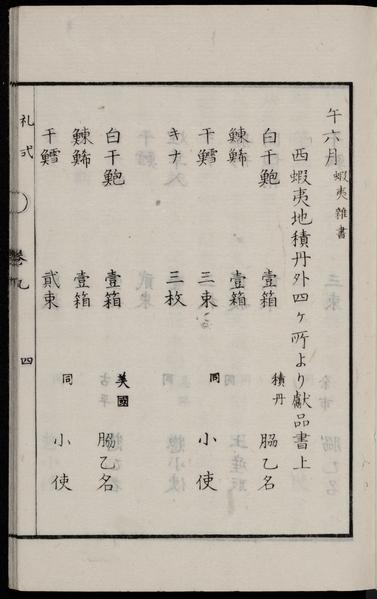 午六月 蝦夷雑書
西蝦夷地積丹外四ヶ所より献品書上
白干鮑 壹箱 積丹 脇乙名
鰊鯑 壹箱
干鱈 三束 同 小使
キナ 三枚
白干鮑 壹箱 美國 脇乙名
鰊鯑 壹箱
干鱈 貳束 同 小使
礼式 巻九 四